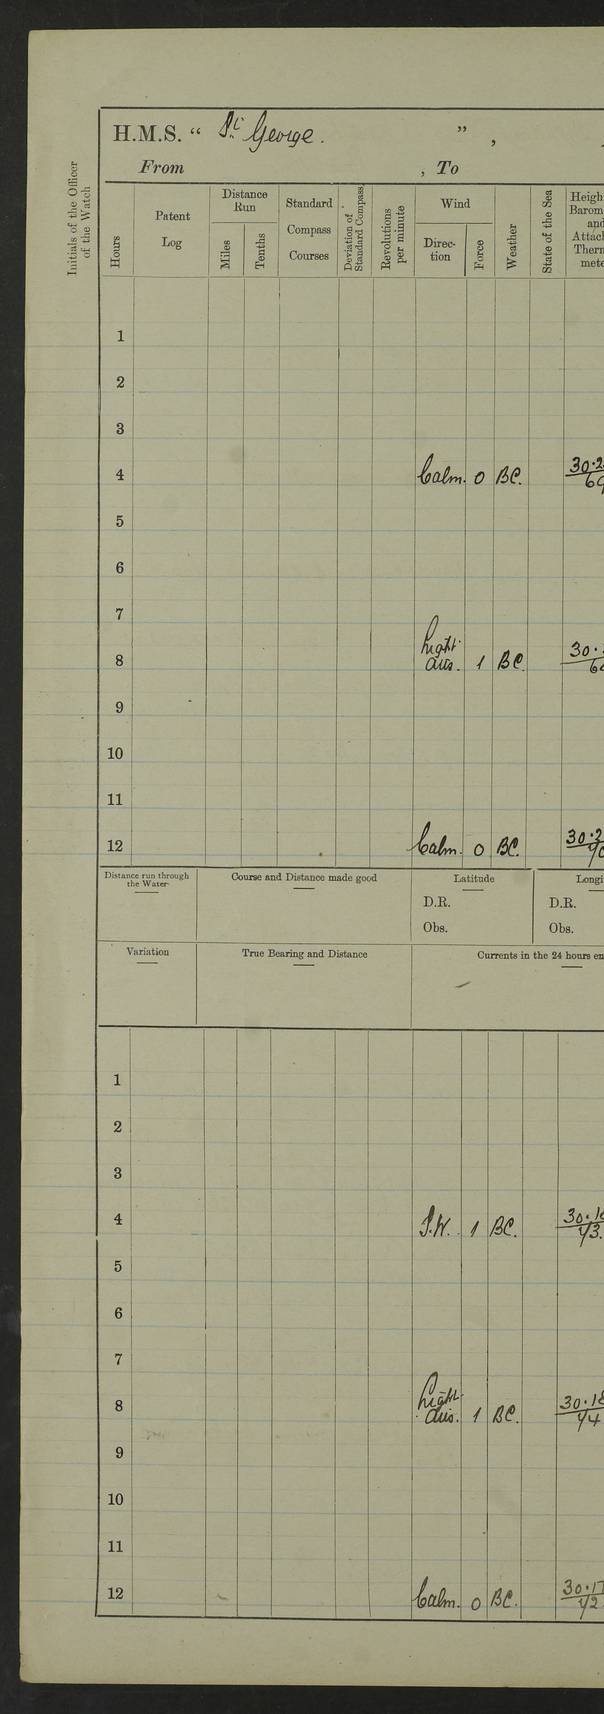 H.M.S. “ St. George. ” ,
From , To
Initials of the Officer
of the Watch
Hours
Patent
Log
Distance
Run
Miles
Tenths
Standard
Compass
Courses
Deviation of
Standard Compass
Revolutions
per minute
Wind
Direc-
tion
Force
Weather
State of the Sea
Heigh
Barom
and
Attach
Therm
mete
1
2
3
4 Calm. 0 BC. 30.2
69
5
6
7
8 Light
airs. 1 BC. 30.
9
10
11
12 Calm. 0 BC. 30.2
Distance run through
the Water
Course and Distance made good
Latitude
D.R.
Obs.
Longi
D.R.
Obs.
Variation
True Bearing and Distance
Currents in the 24 hours en
1
2
3
4 S.W. 1 BC. 30.16
73.
5
6
7
8 Light
airs. 1 BC. 30.18
74
9
10
11
12 Calm. 0 BC. 30.17
72